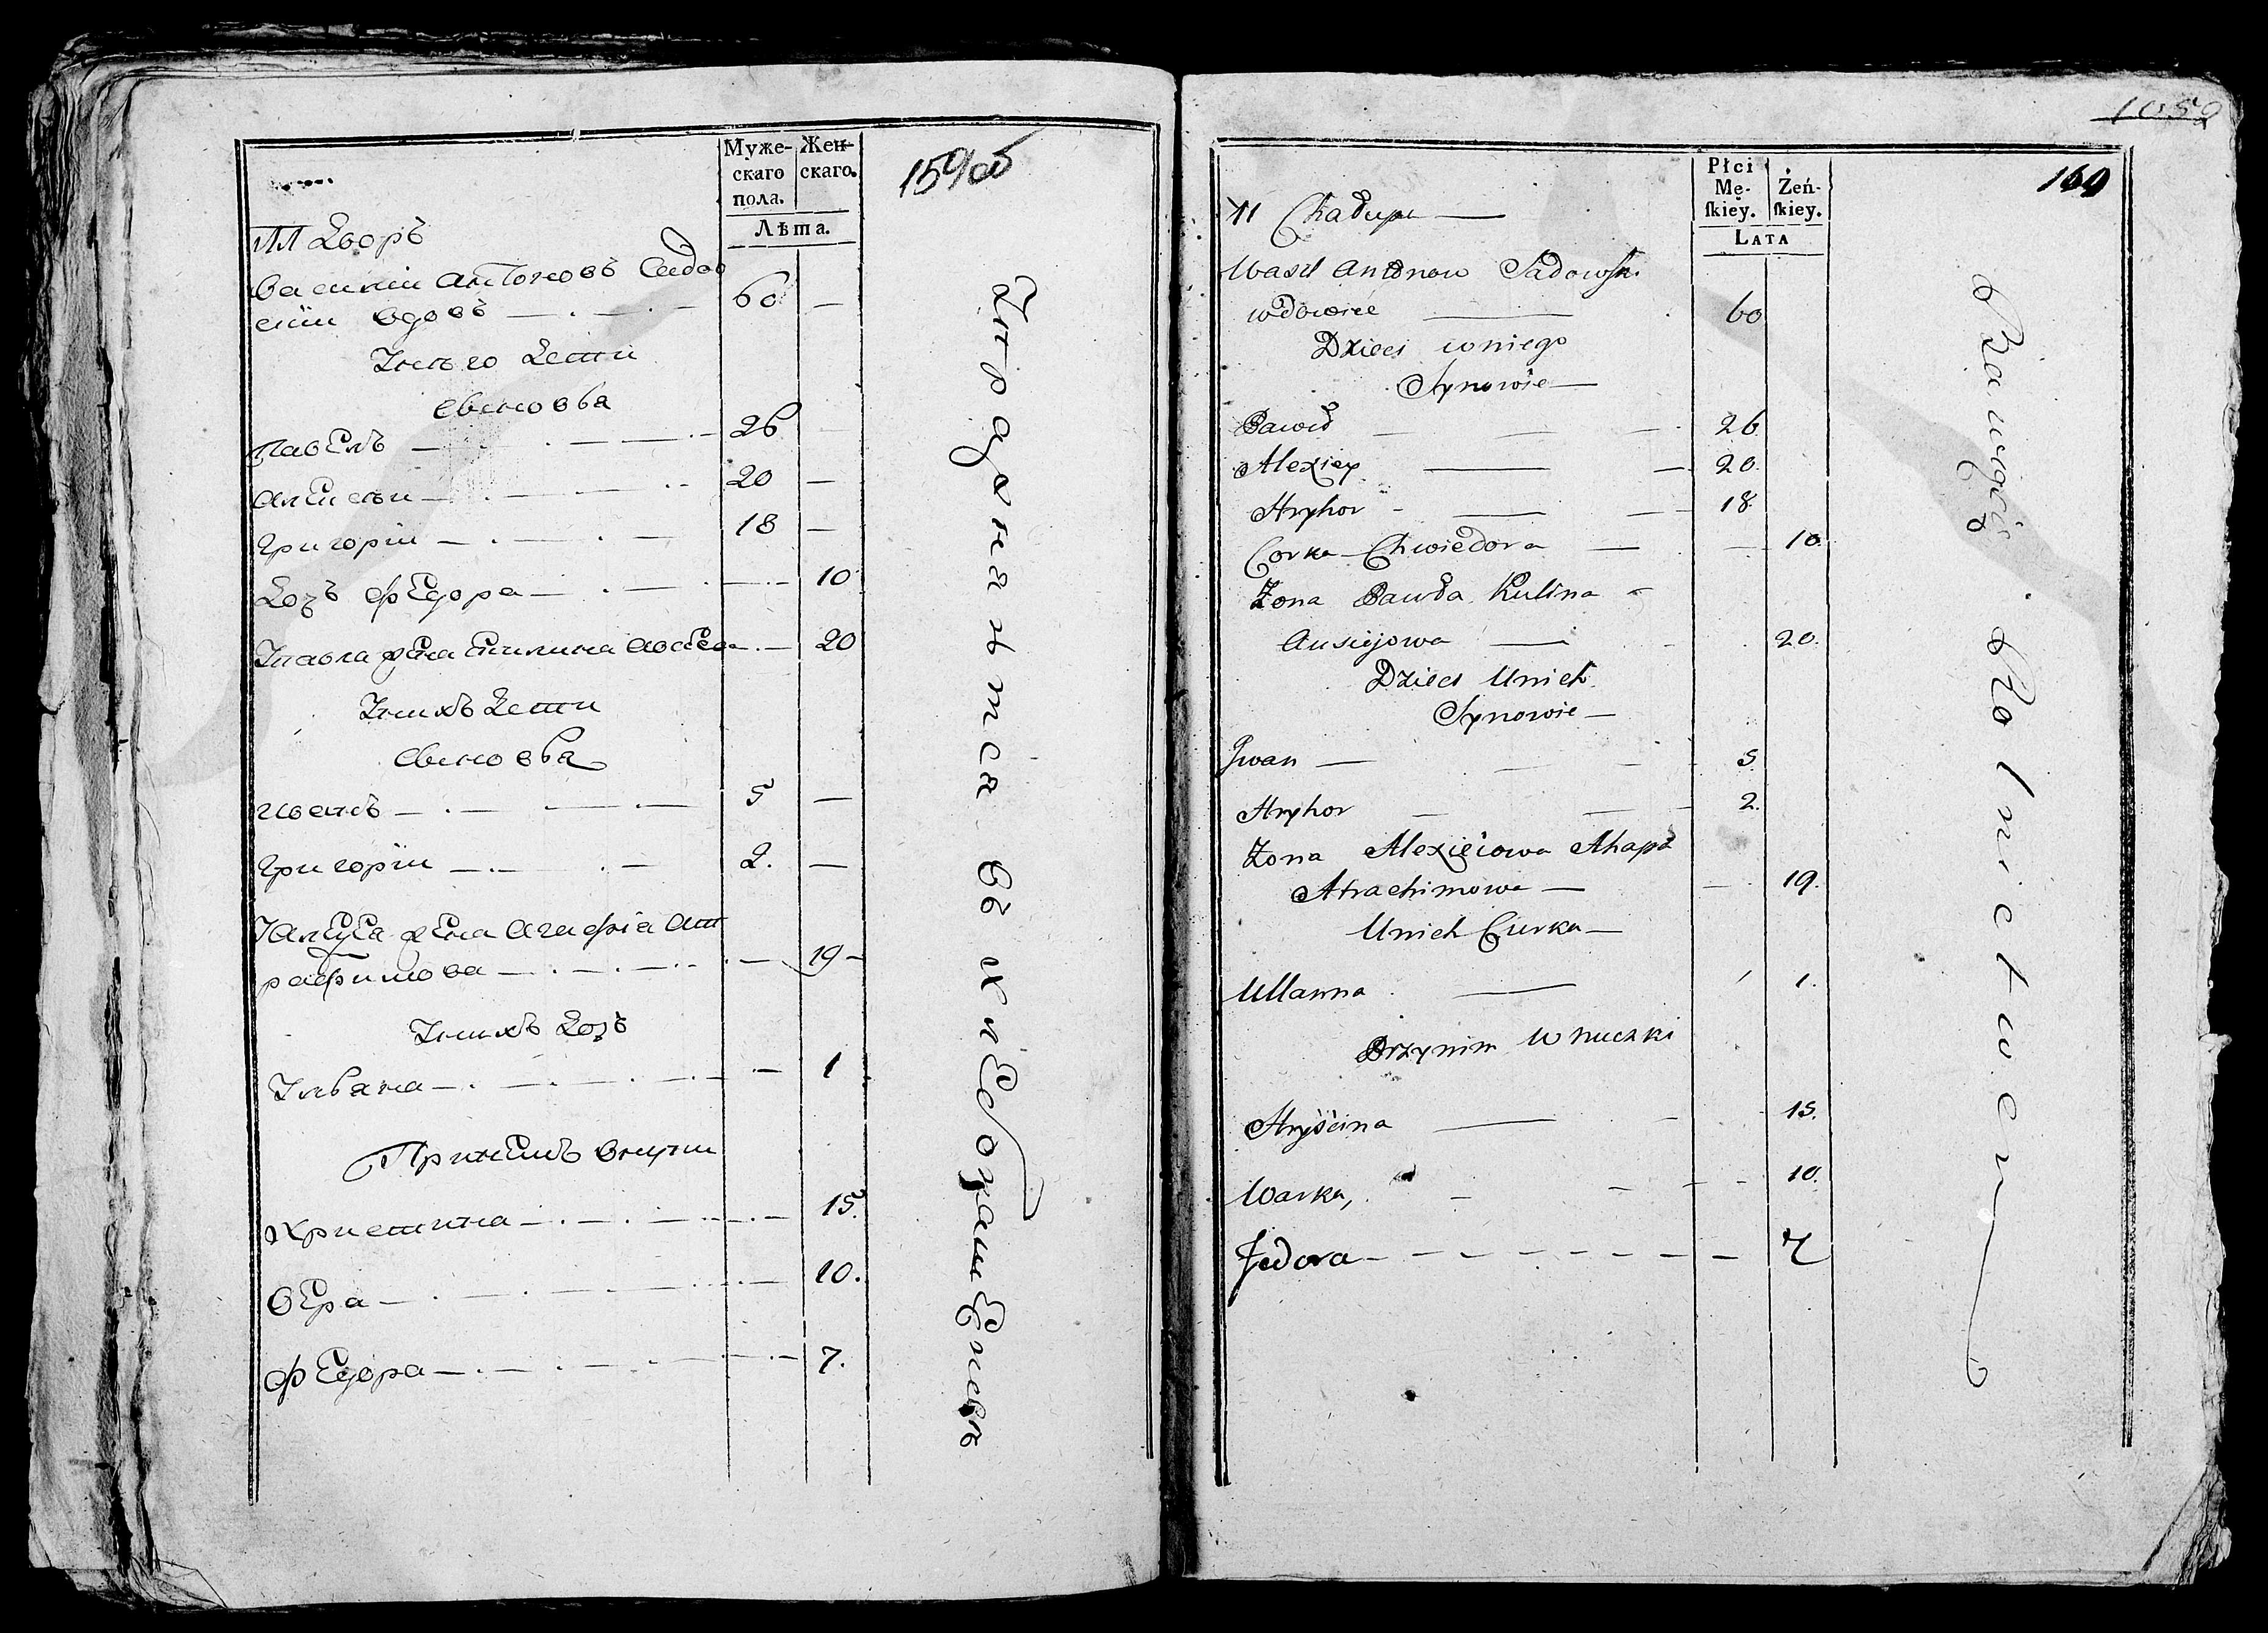 Муже-
скаго
пола.
Жен-
скаго.
Лѣта.
15
Дворъ
Василии Антоновъ Садов
скии вдовъ 60 —
У него дети
сыновья
Павелъ 26 —
Алексеи 20 —
Григории 18 —
Дочь Федора — 10
У Павла жена Акилина Авсеева — 20
У нихъ дети
сыновья
Иванъ 5 —
Григории 2. —
У Алексея жена Агафия Ат
рафимова — 19 —
У нихъ дочь
Ульяна — 1
При немъ внучки
Христина — 15.
Вера — 10.
Федора — 7.
Упражняется въ хлебопашестве
1059
169
Płci
Mę-
ſkiey.
Żeń-
ſkiey.
LATA
11 Chałupa —
Wasil Antonow Sadowski
wdowiec — 60
Dzieci u niego
Synowie —
Paweł — 26.
Alexiey — 20.
Hryhor — 18.
Corka Chwiedora — 10.
Żona Pawła Kulina
Ausiejowa — 20.
Dzieci U nich
Synowie —
Jwan — 5.
Hryhor — 2.
Żona Alexieiowa Ahapa
Atrachimowa — 19.
U nich Curka —
Ullanna — 1.
Przy nim Wnuczki
Hryścina — 15.
Warka, — 10.
Fedora — 7
Bawi się Rolnictwem